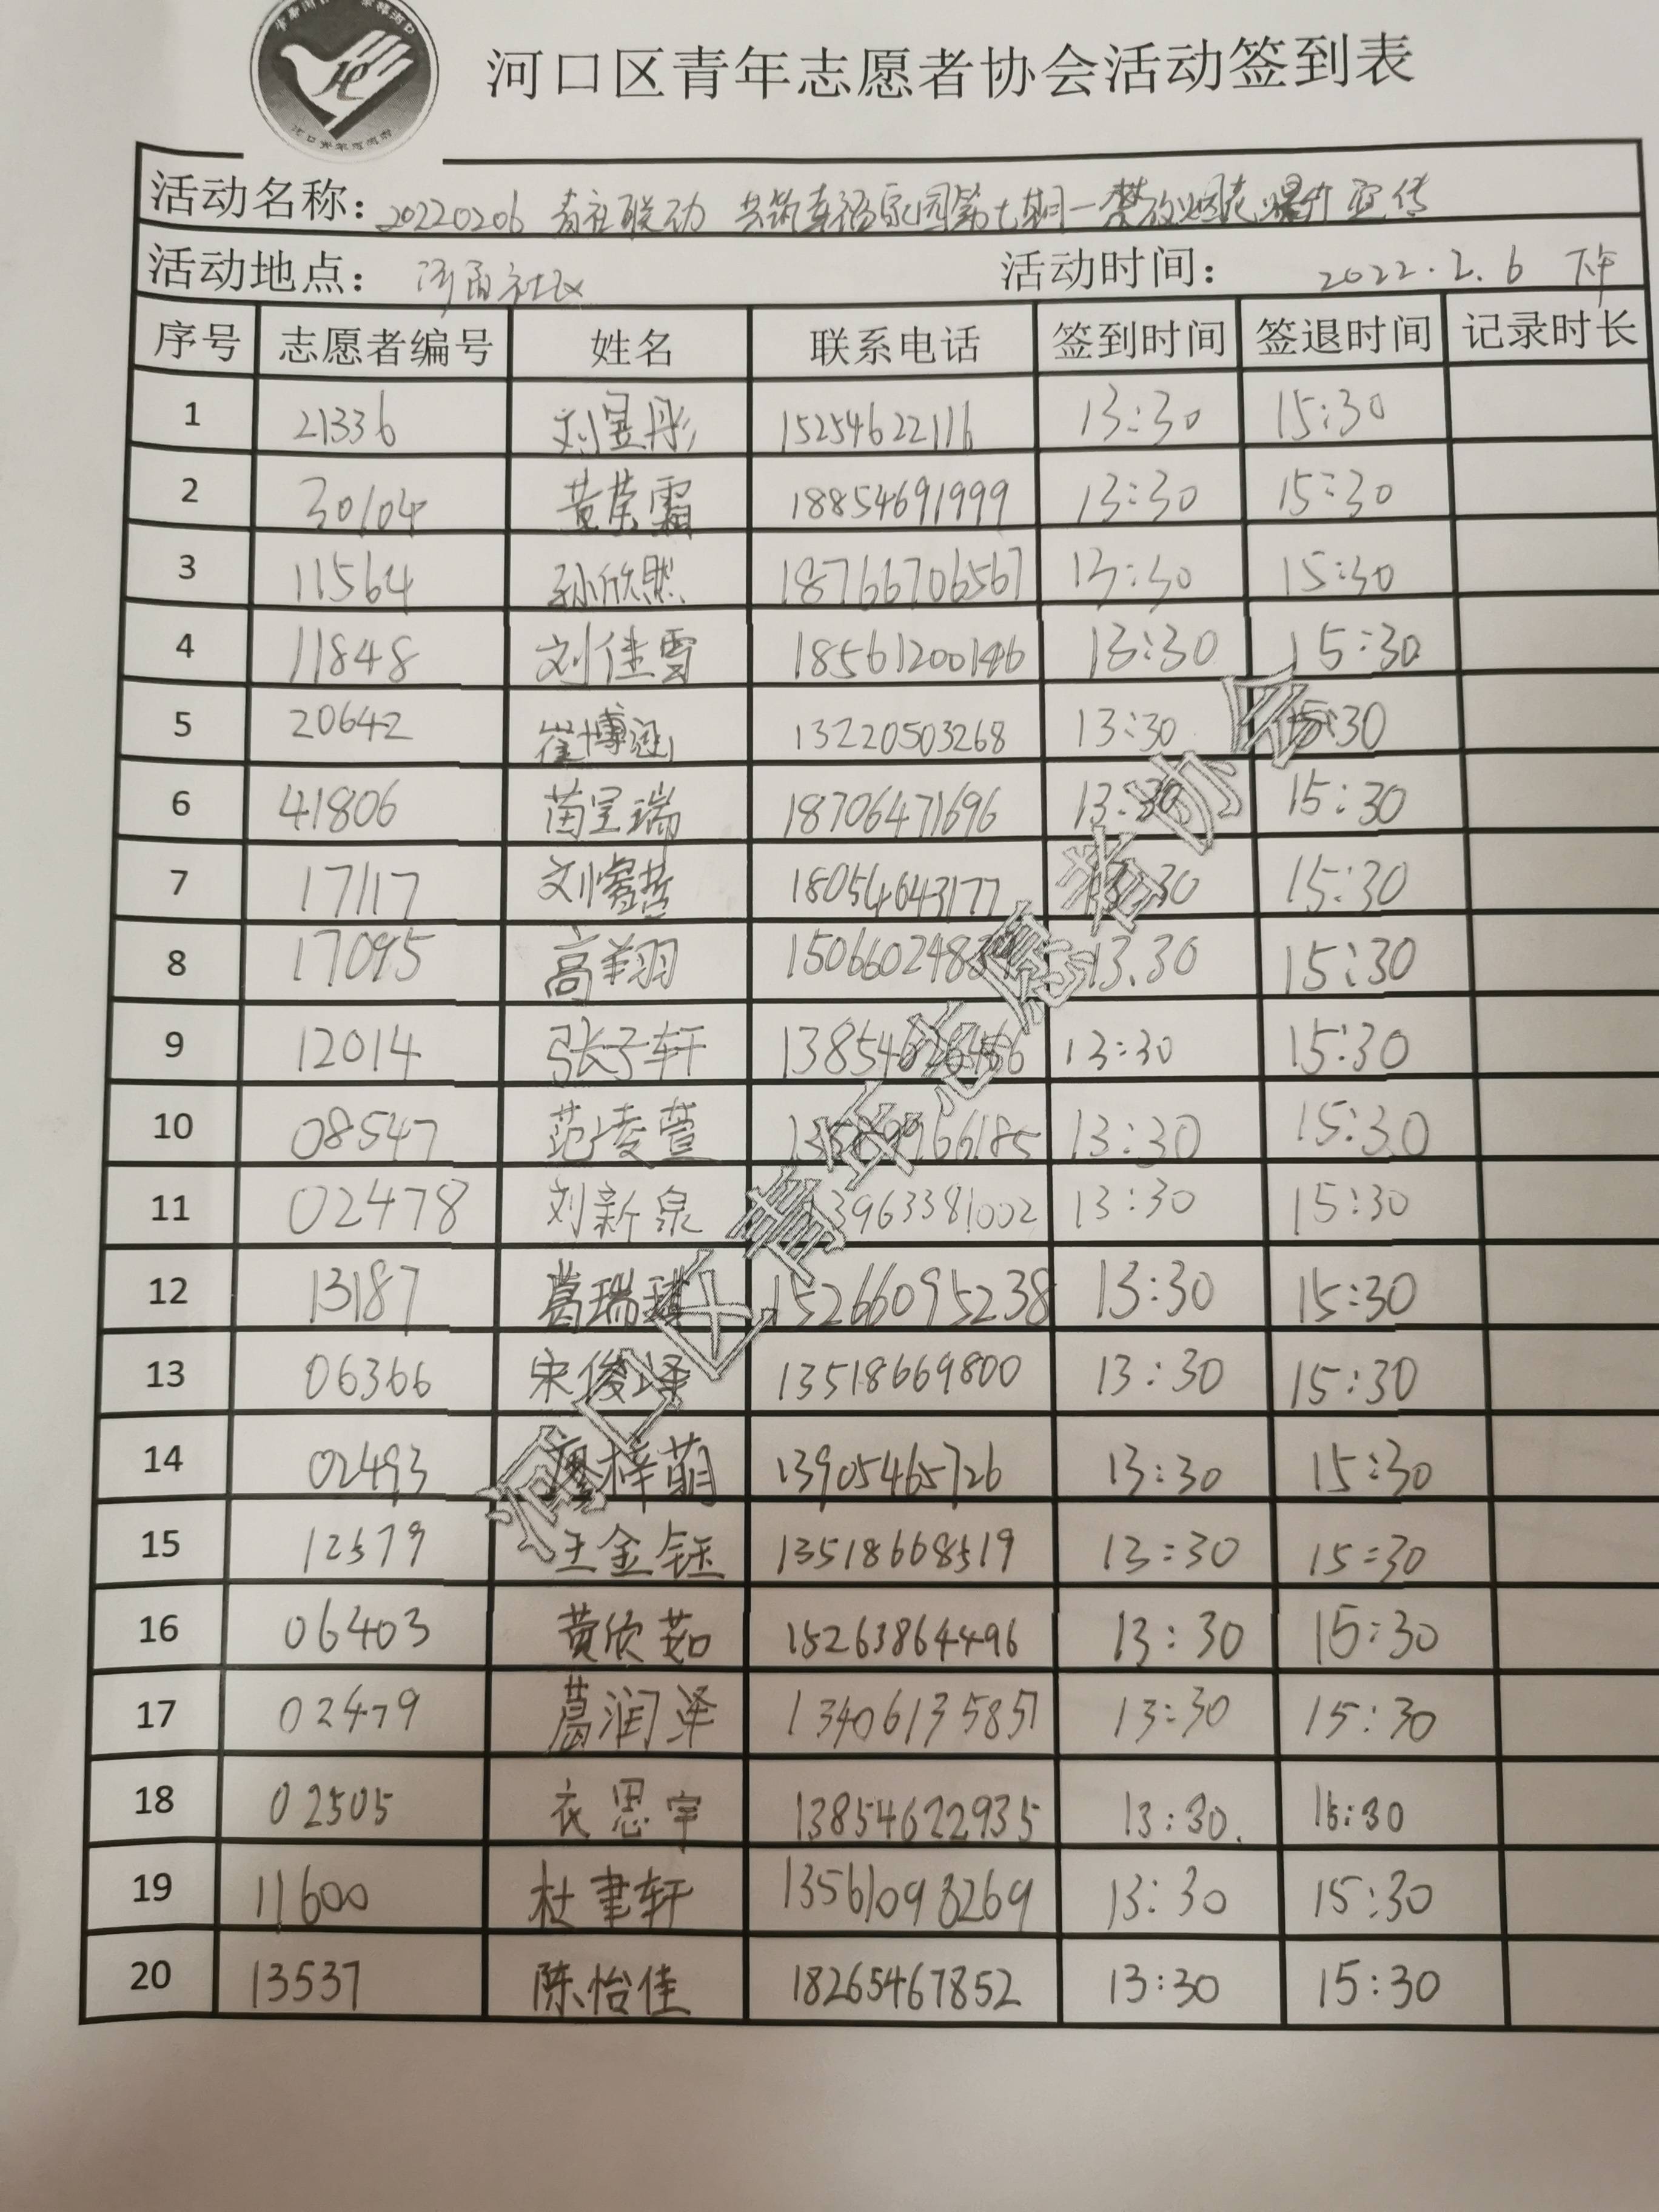 河口区青年志愿者协会活动签到表
活动名称：20220206 青社联动 共筑幸福家园第七期—禁放烟花爆竹宣传
活动地点：河西社区 活动时间：2022.2.6 下午
序号 志愿者编号 姓名 联系电话 签到时间 签退时间 记录时长
1 21336 刘昱彤 15254622116 13:30 15:30
2 30104 黄荣霜 18854691999 13:30 15:30
3 11564 孙欣然 18766706567 13:30 15:30
4 11848 刘佳雪 18561200146 13:30 15:30
5 20642 崔博涵 13220503268 13:30 15:30
6 41806 苗呈瑞 18706471696 13:30 15:30
7 17117 刘睿哲 18054643177 13:30 15:30
8 17095 高翔 13.30 15:30
9 12014 张子轩 13:30 15:30
10 08547 范凌萱 13:30 15:30
11 02478 刘新泉 13963381002 13:30 15:30
12 13187 葛瑞琪 15266095238 13:30 15:30
13 06366 宋俊泽 13518669800 13:30 15:30
14 02493 廖梓萌 13905465726 13:30 15:30
15 12579 王金钰 13518668519 13:30 15:30
16 06403 黄欣茹 15263864496 13:30 15:30
17 02479 葛润泽 13406135857 13:30 15:30
18 02505 衣思宇 13854622935 13:30. 15:30
19 11600 杜聿轩 13561098269 13:30 15:30
20 13537 陈怡佳 18265467852 13:30 15:30
河口区青年志愿者协会